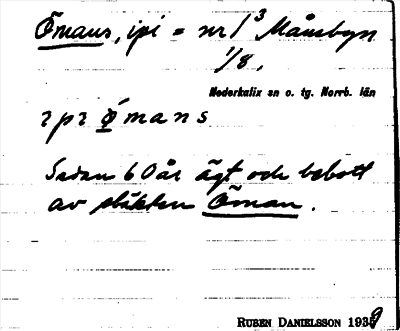 Ömans, ipi = nr 1³ Månsbyn
1/8.
Nederkalix sn o. tg. Norrb. län
Sedan 60 år ägt och bebott
av släkten Öman.
RUBEN DANIELSSON 1939